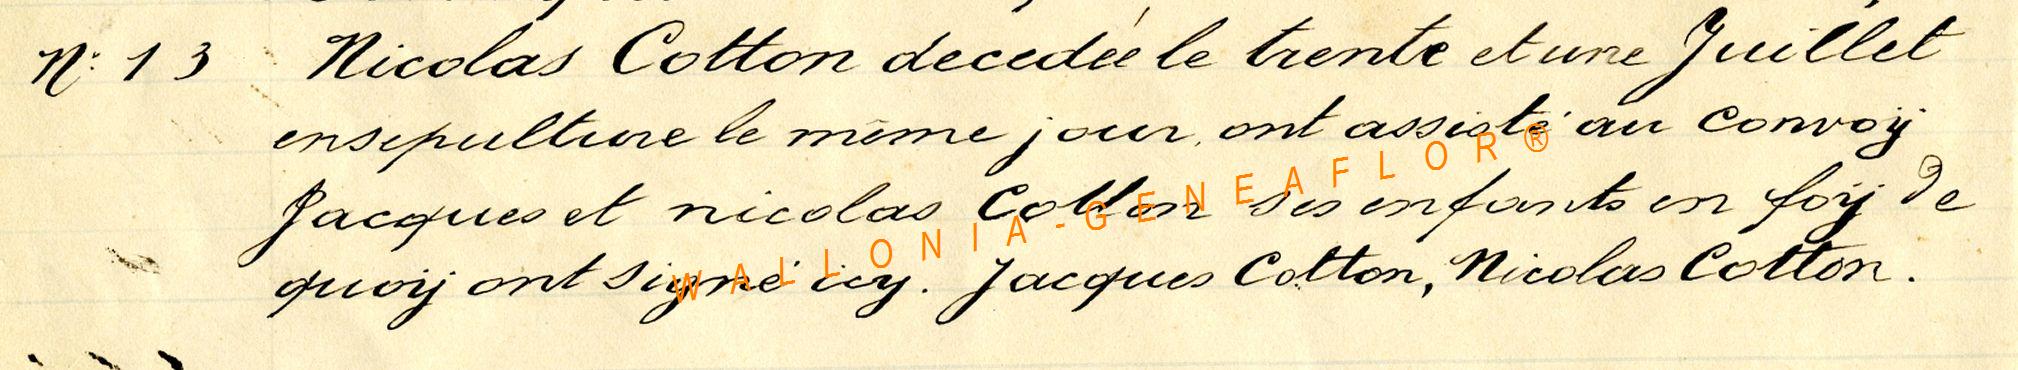 N° 13 Nicolas Cotton decedée le trente et une Juillet
ensepulture le même jour, ont assisté au convoÿ
Jacques et nicolas Cotton ses enfants en foÿ de
quoÿ ont signé icy. Jacques Cotton, Nicolas Cotton.
WALLONIA-GENEAFLOR®